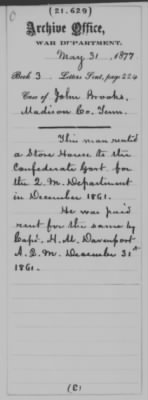 (21.629)
Archive Office,
WAR DEPARTMENT,
May 31, 1877
Book 3 Letters Sent, page 224
Case of John Brooks,
Madison Co. Tenn.
This man rented
a Store House to the
Confederate Govt. for
the Q. M. Department
in December 1861.
He was paid
rent for the same by
Capt. H. M. Davenport
A. Q. M. December 31st
1861.
(C)